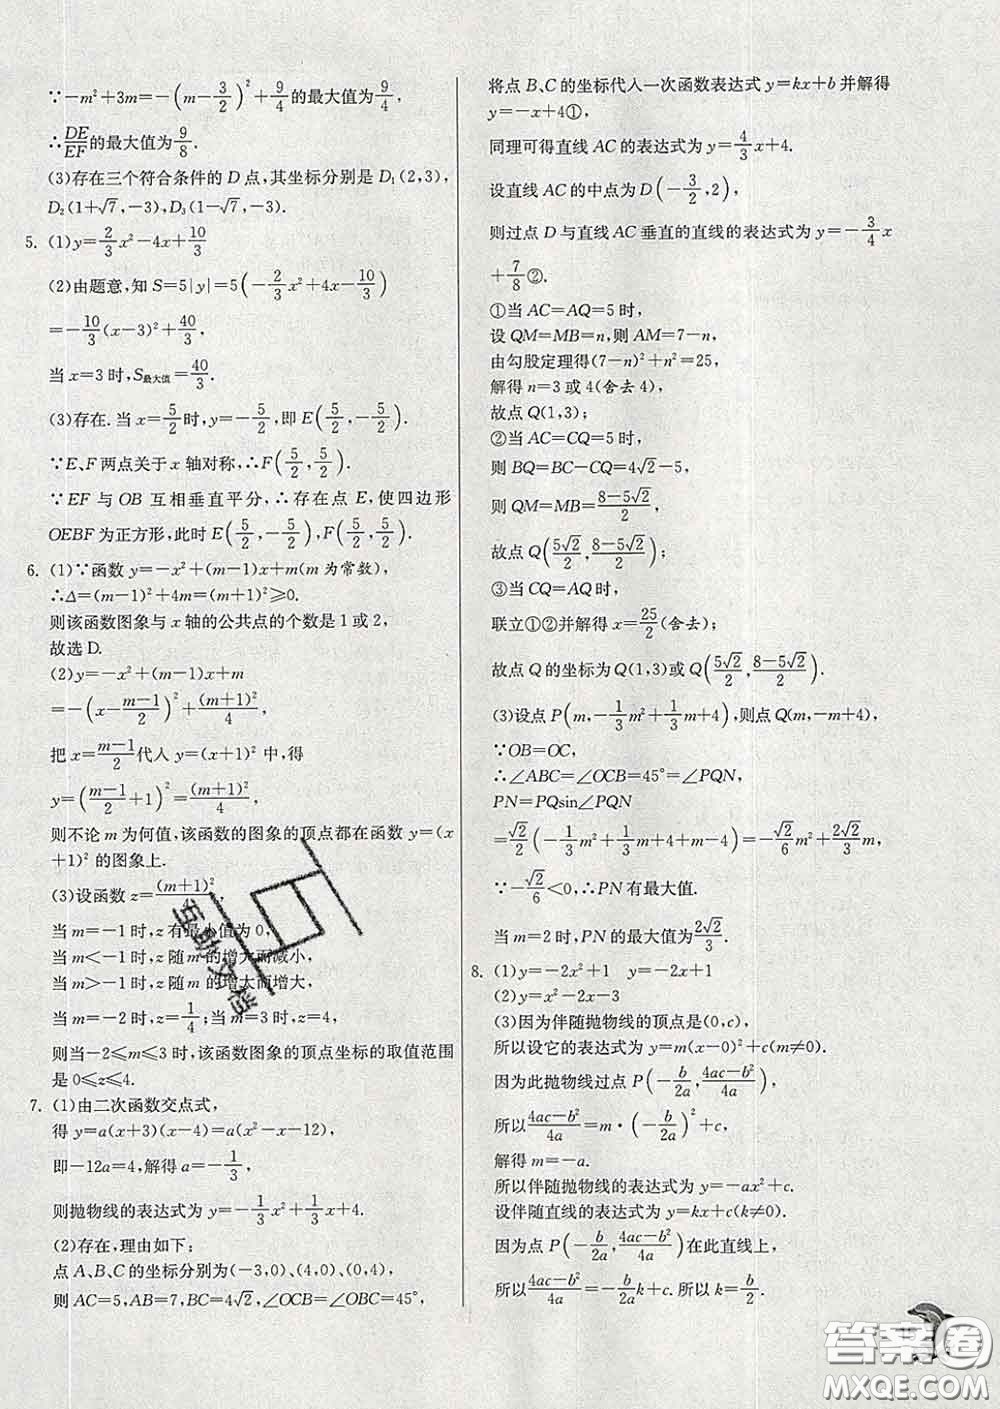 ∵−m²+3m=−(m−3/2)²+9/4的最大值为9/4,
∴DE/EF的最大值为9/8.
(3)存在三个符合条件的 D 点,其坐标分别是 D₁(2,3),
D₂(1+√7,−3),D₃(1−√7,−3).
5. (1)y=2/3x²−4x+10/3
(2)由题意,知 S=5|y|=5(−2/3x²+4x−10/3)
=−10/3(x−3)²+40/3,
当 x=3 时,S最大值=40/3.
(3)存在.当 x=5/2时,y=−5/2,即 E(5/2,−5/2).
∵E、F 两点关于 x 轴对称,∴F(5/2,5/2).
∵EF 与 OB 互相垂直平分,∴存在点 E,使四边形
OEBF 为正方形,此时 E(5/2,−5/2),F(5/2,5/2).
6. (1)∵函数 y=−x²+(m−1)x+m(m 为常数),
∴Δ=(m−1)²+4m=(m+1)²≥0.
则该函数图象与 x 轴的公共点的个数是 1 或 2,
故选 D.
(2)y=−x²+(m−1)x+m
=−(x−(m−1)/2)²+(m+1)²/4,
把 x=(m−1)/2代入 y=(x+1)² 中,得
y=((m−1)/2+1)²=(m+1)²/4,
则不论 m 为何值,该函数的图象的顶点都在函数 y=(x
+1)² 的图象上.
(3)设函数 z=(m+1)²
当 m=−1 时,z 有最小值为 0,
当 m<−1 时,z 随 m 的增大而减小,
当 m>−1 时,z 随 m 的增大而增大,
当 m=−2 时,z=1/4;当 m=3 时,z=4,
则当−2≤m≤3 时,该函数图象的顶点坐标的取值范围
是 0≤z≤4.
7. (1)由二次函数交点式,
得 y=a(x+3)(x−4)=a(x²−x−12),
即−12a=4,解得 a=−1/3,
则抛物线的表达式为 y=−1/3x²+1/3x+4.
(2)存在,理由如下:
点 A、B、C 的坐标分别为(−3,0)、(4,0)、(0,4),
则 AC=5,AB=7,BC=4√2,∠OCB=∠OBC=45°,
将点 B、C 的坐标代入一次函数表达式 y=kx+b 并解得
y=−x+4①,
同理可得直线 AC 的表达式为 y=4/3x+4.
设直线 AC 的中点为 D(−3/2,2),
则过点 D 与直线 AC 垂直的直线的表达式为 y=−3/4x
+7/8②.
①当 AC=AQ=5 时,
设 QM=MB=n,则 AM=7−n,
由勾股定理得(7−n)²+n²=25,
解得 n=3 或 4(舍去 4),
故点 Q(1,3);
②当 AC=CQ=5 时,
则 BQ=BC−CQ=4√2−5,
则 QM=MB=(8−5√2)/2,
故点 Q(5√2/2,(8−5√2)/2);
③当 CQ=AQ 时,
联立①②并解得 x=25/2(舍去);
故点 Q 的坐标为 Q(1,3)或 Q(5√2/2,(8−5√2)/2).
(3)设点 P(m,−1/3m²+1/3m+4),则点 Q(m,−m+4),
∵OB=OC,
∴∠ABC=∠OCB=45°=∠PQN,
PN=PQsin∠PQN
=√2/2(−1/3m²+1/3m+4+m−4)=−√2/6m²+2√2/3m,
∵−√2/6<0,∴PN 有最大值.
当 m=2 时,PN 的最大值为2√2/3.
8. (1)y=−2x²+1 y=−2x+1
(2)y=x²−2x−3
(3)因为伴随抛物线的顶点是(0,c),
所以设它的表达式为 y=m(x−0)²+c(m≠0).
因为此抛物线过点 P(−b/2a,(4ac−b²)/4a),
所以(4ac−b²)/4a=m·(−b/2a)²+c,
解得 m=−a.
所以伴随抛物线的表达式为 y=−ax²+c.
设伴随直线的表达式为 y=kx+c(k≠0).
因为点 P(−b/2a,(4ac−b²)/4a)在此直线上,
所以(4ac−b²)/4a=−b/2a k+c.所以 k=b/2.
互助文档
答案圈
MXQE.COM